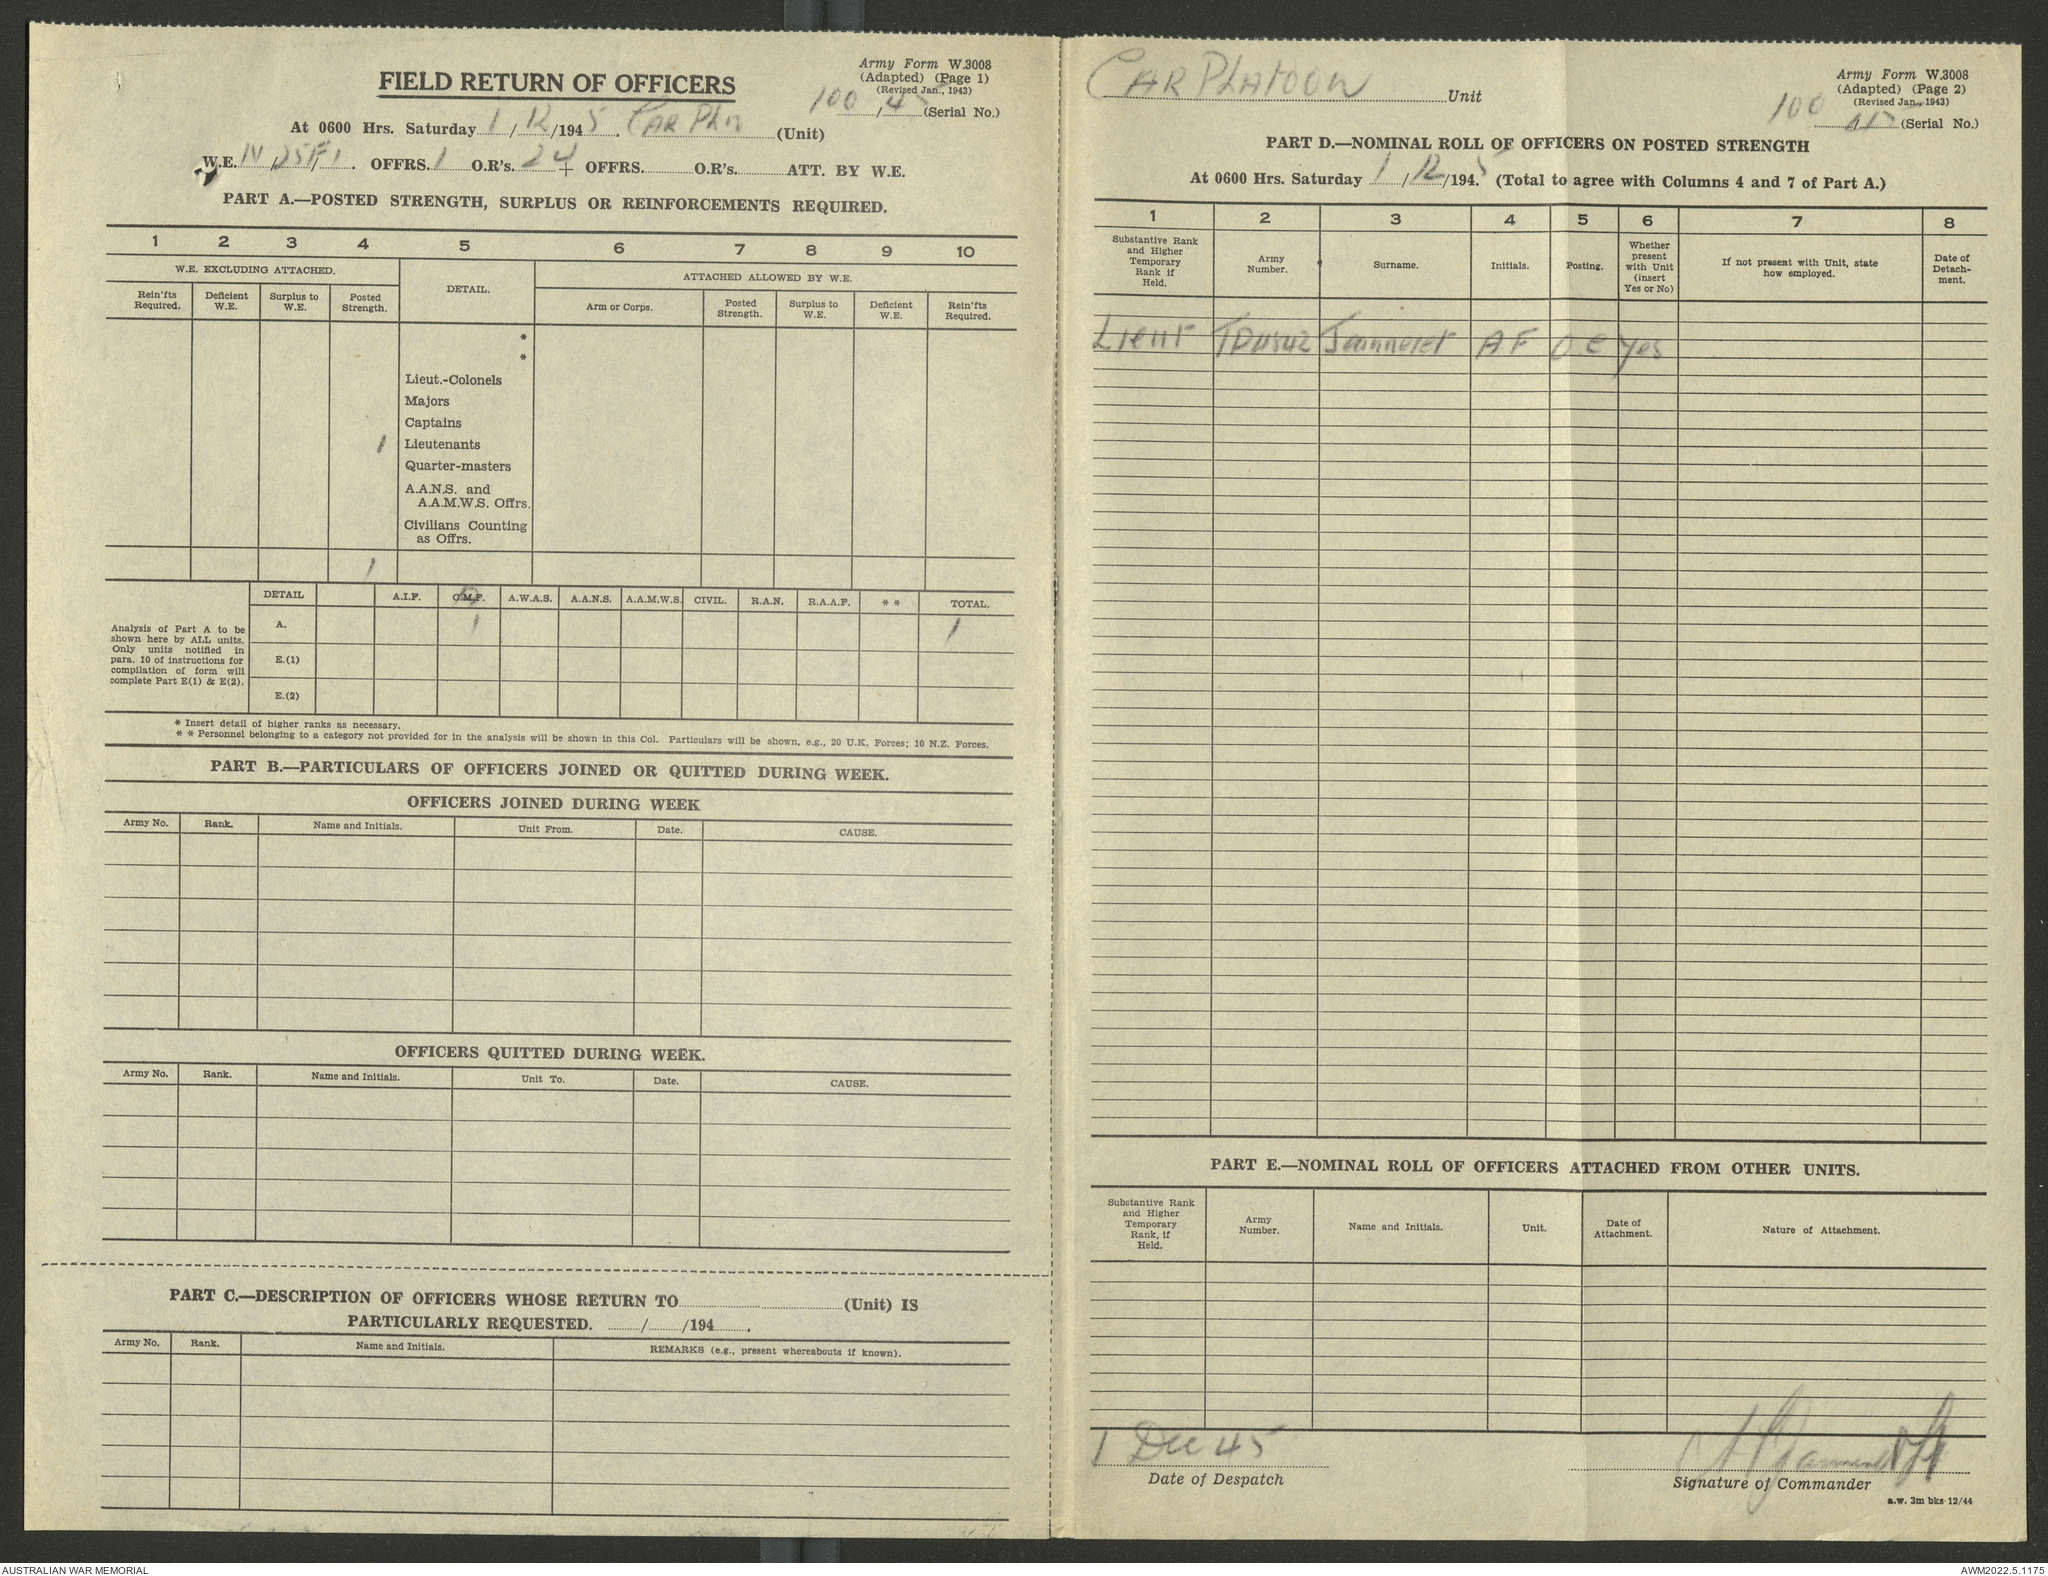 Army Form W.3008
(Adapted) (Page 1)
(Revised Jan., 1943)
FIELD RETURN OF OFFICERS
100 / 45 (Serial No.)
At 0600 Hrs. Saturday 1 / 12 /1945. Car Pln (Unit)
W.E. IV OFFRS. 1 O.R's. 24 + OFFRS. O.R's. ATT. BY W.E.
PART A.—POSTED STRENGTH, SURPLUS OR REINFORCEMENTS REQUIRED.
1 2 3 4 5 6 7 8 9 10
W.E. EXCLUDING ATTACHED.
DETAIL.
ATTACHED ALLOWED BY W.E.
Rein'fts Required.
Deficient W.E.
Surplus to W.E.
Posted Strength.
Arm or Corps.
Posted Strength.
Surplus to W.E.
Deficient W.E.
Rein'fts Required.
*
*
Lieut.-Colonels
Majors
Captains
1 Lieutenants
Quarter-masters
A.A.N.S. and
A.A.M.W.S. Offrs.
Civilians Counting
as Offrs.
1
DETAIL A.I.F. C.M.F. A.W.A.S. A.A.N.S. A.A.M.W.S. CIVIL. R.A.N. R.A.A.F. * * TOTAL.
Analysis of Part A to be
shown here by ALL units.
Only units notified in
para. 10 of instructions for
compilation of form will
complete Part E(1) & E(2).
A. 1 1
E.(1)
E.(2)
* Insert detail of higher ranks as necessary.
* * Personnel belonging to a category not provided for in the analysis will be shown in this Col. Particulars will be shown, e.g., 20 U.K. Forces; 10 N.Z. Forces.
PART B.—PARTICULARS OF OFFICERS JOINED OR QUITTED DURING WEEK.
OFFICERS JOINED DURING WEEK
Army No. Rank. Name and Initials. Unit From. Date. CAUSE.
OFFICERS QUITTED DURING WEEK.
Army No. Rank. Name and Initials. Unit To. Date. CAUSE.
PART C.—DESCRIPTION OF OFFICERS WHOSE RETURN TO (Unit) IS
PARTICULARLY REQUESTED. / /194 .
Army No. Rank. Name and Initials. REMARKS (e.g., present whereabouts if known).
Car Platoon Unit
Army Form W.3008
(Adapted) (Page 2)
(Revised Jan., 1943)
100 45 (Serial No.)
PART D.—NOMINAL ROLL OF OFFICERS ON POSTED STRENGTH
At 0600 Hrs. Saturday 1 / 12 /1945 (Total to agree with Columns 4 and 7 of Part A.)
1 2 3 4 5 6 7 8
Substantive Rank and Higher Temporary Rank if Held.
Army Number.
Surname.
Initials.
Posting.
Whether present with Unit (insert Yes or No)
If not present with Unit, state how employed.
Date of Detach-ment.
Lieut Jeanneret A F O.C Yes
PART E.—NOMINAL ROLL OF OFFICERS ATTACHED FROM OTHER UNITS.
Substantive Rank and Higher Temporary Rank, if Held.
Army Number.
Name and Initials.
Unit.
Date of Attachment.
Nature of Attachment.
1 Dec 45
Date of Despatch
Signature of Commander
a.w. 3m bks 12/44
AUSTRALIAN WAR MEMORIAL
AWM2022.5.1175